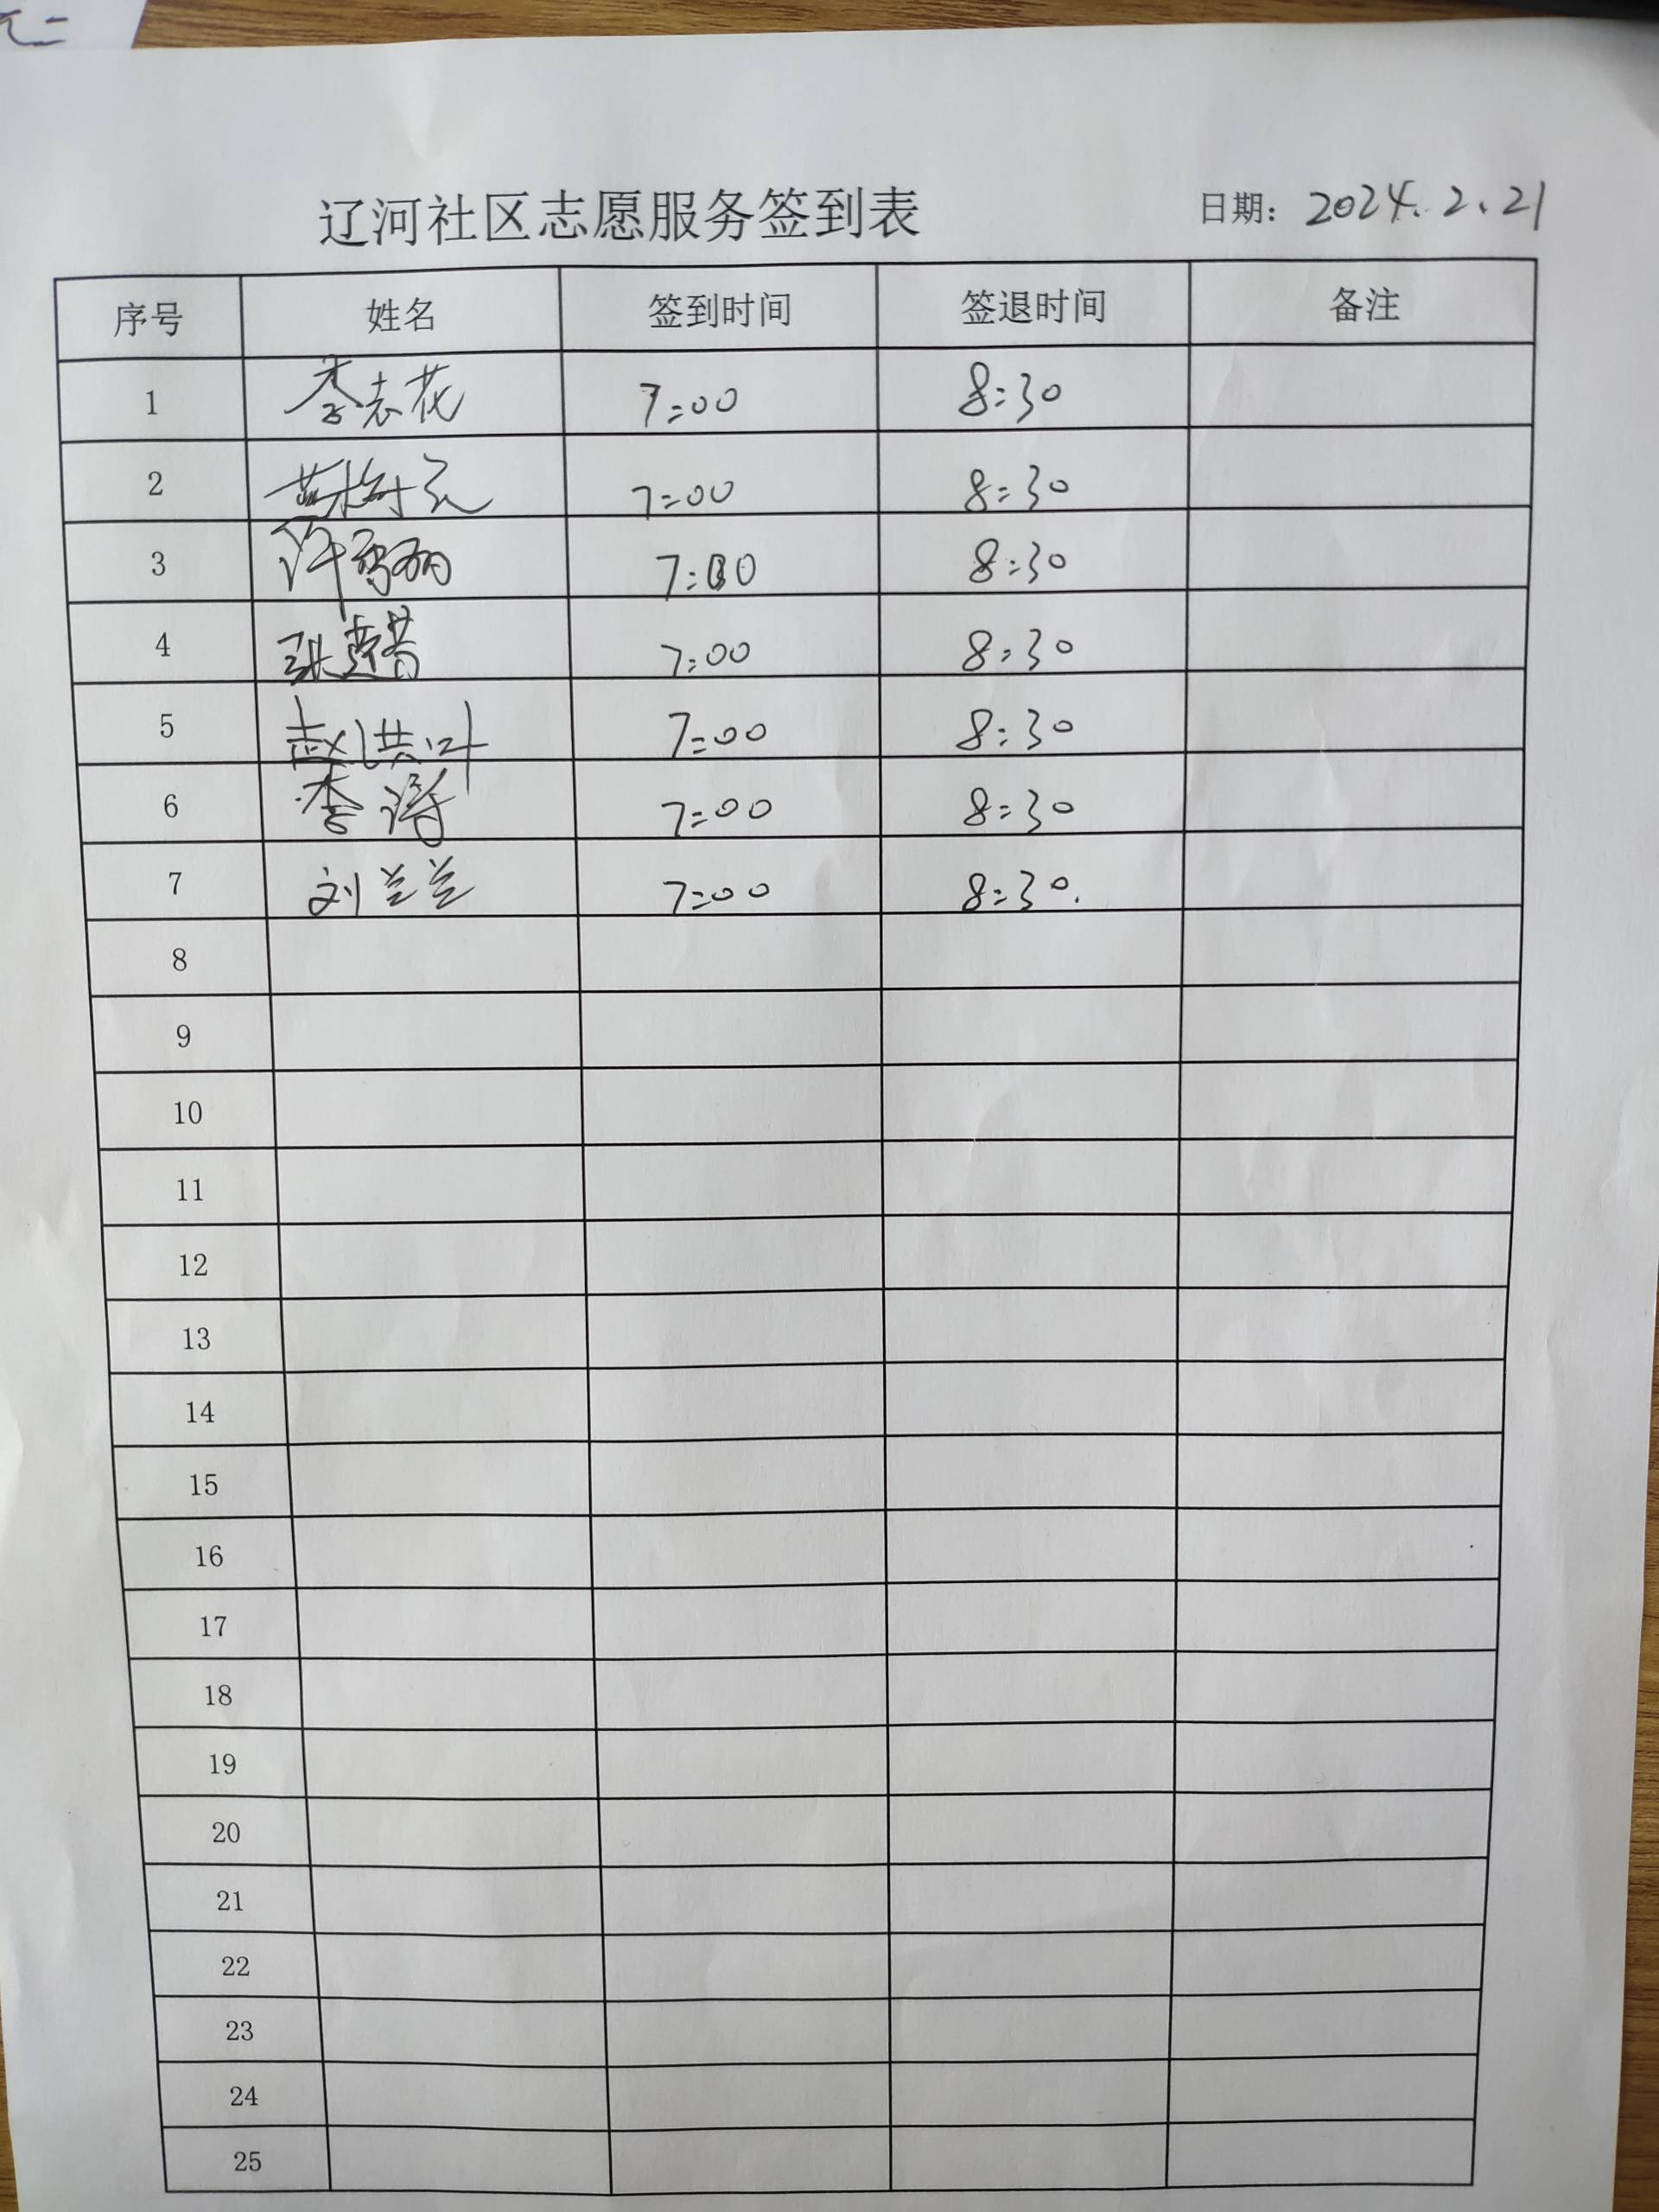 辽河社区志愿服务签到表 日期: 2024.2.21
序号 姓名 签到时间 签退时间 备注
1 李志花 7:00 8:30
2 7:00 8:30
3 许 7:00 8:30
4 张 7:00 8:30
5 赵洪叶 7:00 8:30
6 李涛 7:00 8:30
7 刘兰兰 7:00 8:30.
8
9
10
11
12
13
14
15
16
17
18
19
20
21
22
23
24
25